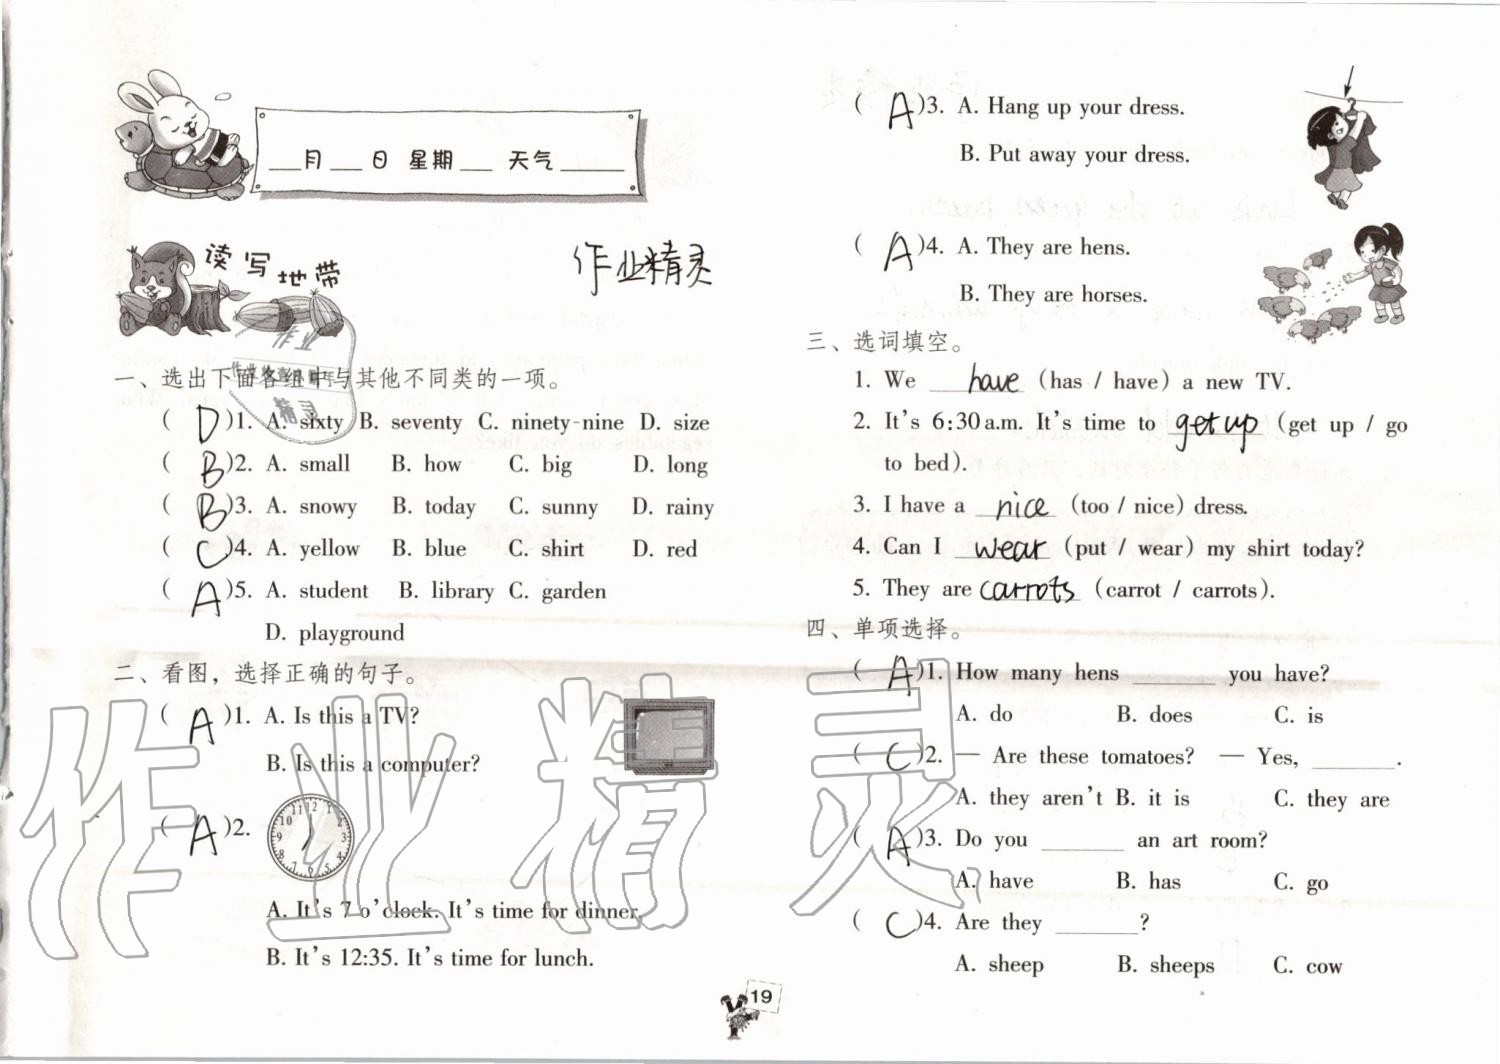 ___月___日 星期___ 天气_____
读写地带
作业精灵
一、选出下面各组中与其他不同类的一项。
( D )1. A. sixty B. seventy C. ninety-nine D. size
( B )2. A. small B. how C. big D. long
( B )3. A. snowy B. today C. sunny D. rainy
( C )4. A. yellow B. blue C. shirt D. red
( A )5. A. student B. library C. garden
D. playground
二、看图，选择正确的句子。
( A )1. A. Is this a TV?
B. Is this a computer?
( A )2.
A. It's 7 o'clock. It's time for dinner.
B. It's 12:35. It's time for lunch.
( A )3. A. Hang up your dress.
B. Put away your dress.
( A )4. A. They are hens.
B. They are horses.
三、选词填空。
1. We have (has / have) a new TV.
2. It's 6:30 a.m. It's time to get up (get up / go
to bed).
3. I have a nice (too / nice) dress.
4. Can I wear (put / wear) my shirt today?
5. They are carrots (carrot / carrots).
四、单项选择。
( A )1. How many hens ______ you have?
A. do B. does C. is
( C )2. — Are these tomatoes? — Yes, ______.
A. they aren't B. it is C. they are
( A )3. Do you ______ an art room?
A. have B. has C. go
( C )4. Are they ______?
A. sheep B. sheeps C. cow
19
作业精灵